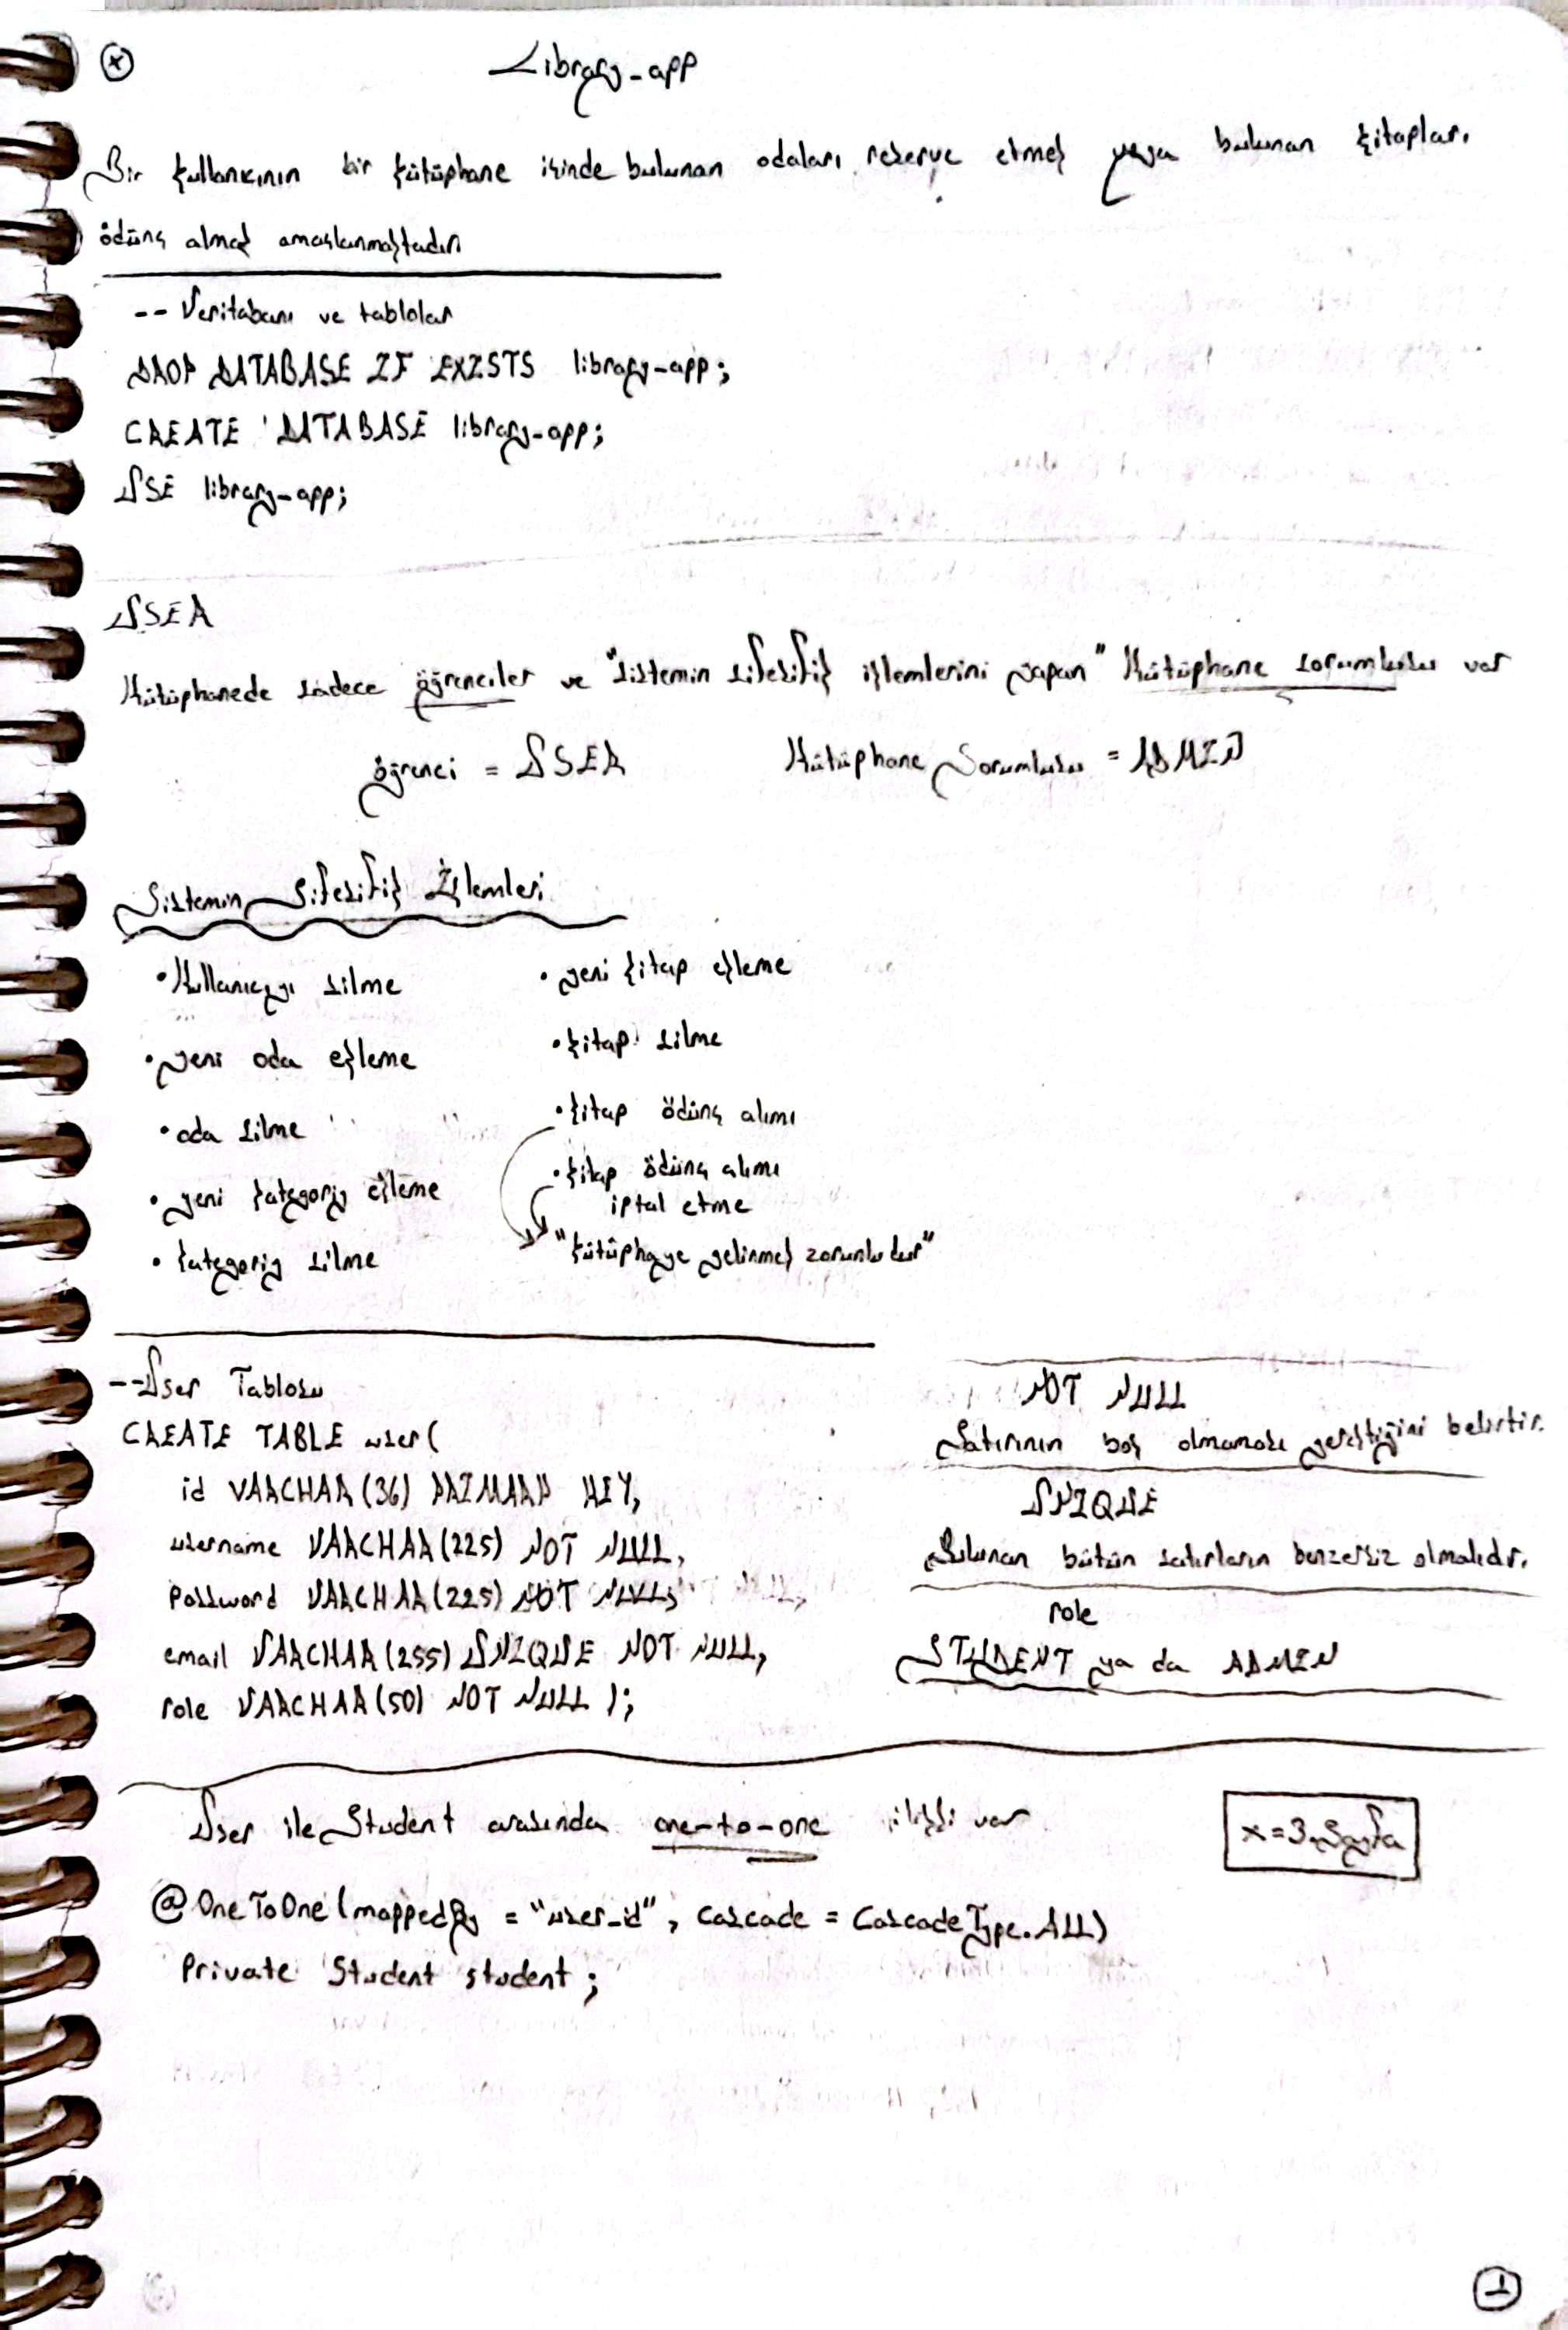 x
Library_app
Bir kullanıcının bir kütüphane içinde bulunan odaları rezerve etmek veya bulunan kitapları
ödünç almak amaçlanmaktadır
-- Veritabanı ve tablolar
DROP DATABASE IF EXISTS library_app;
CREATE DATABASE library_app;
USE library_app;
USER
Kütüphanede sadece öğrenciler ve "sistemin sifesifik işlemlerini yapan" Kütüphane sorumlusu var
öğrenci = USER Kütüphane Sorumlusu = ADMIN
Sistemin Sifesifik İşlemleri
• Kullanıcıyı silme
• yeni oda ekleme
• oda silme
• yeni kategoriy ekleme
• kategoriy silme
• yeni kitap ekleme
• kitap silme
• kitap ödünç alımı
• kitap ödünç alımı
iptal etme
"kütüphaye gelinmek zorunludur"
--User Tablosu
CREATE TABLE user(
id VARCHAR(36) PRIMARY KEY,
username VARCHAR(225) NOT NULL,
password VARCHAR(225) NOT NULL,
email VARCHAR(255) UNIQUE NOT NULL,
role VARCHAR(50) NOT NULL );
NOT NULL
Satırının boş olmaması gerektiğini belirtir.
UNIQUE
Bulunan bütün satırların benzersiz olmalıdır.
role
STUDENT ya da ADMIN
User ile Student arasında one-to-one ilişki var
x=3.Sayfa
@OneToOne(mappedBy = "user_id", cascade = CascadeType.ALL)
Private Student student;
1